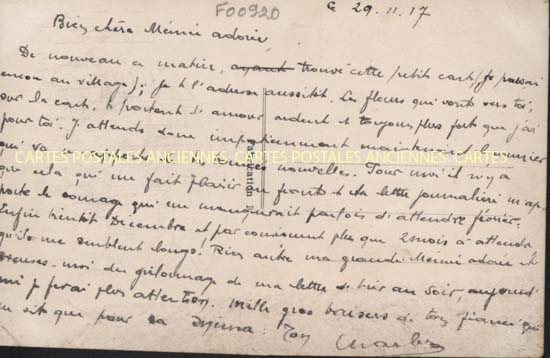 F00920
le 29.11.17
Bien chère Mémé adorée,
De nouveau ce matin, ayant trouvé cette petite carte (je passai
encore au village), je t'adresse aussitôt. Les fleurs qui vont vers toi,
sur la carte, te portent l'amour ardent et toujours plus fort que j'ai
pour toi. J'attends donc impatiemment maintenant le courrier
qui va nouvelles. Pour moi il n'y a
CARTES POSTALES ANCIENNES CARTES POSTALES ANCIENNES CARTES
que cela qui me fait plaisir au front et ta lettre journalière m'ap-
porte le courage qui me manquerait parfois d'attendre février.
Enfin bientôt Décembre et par conséquent plus que 2 mois à attendre
qu'ils me semblent longs! Bien autre ma grande Mémé adorée et
excuses-moi du griffonnage de ma lettre de hier au soir, aujourd'
hui je ferai plus attention. Mille gros baisers de ton fiancé qui
ne vit que pour sa Ton
Fabrication